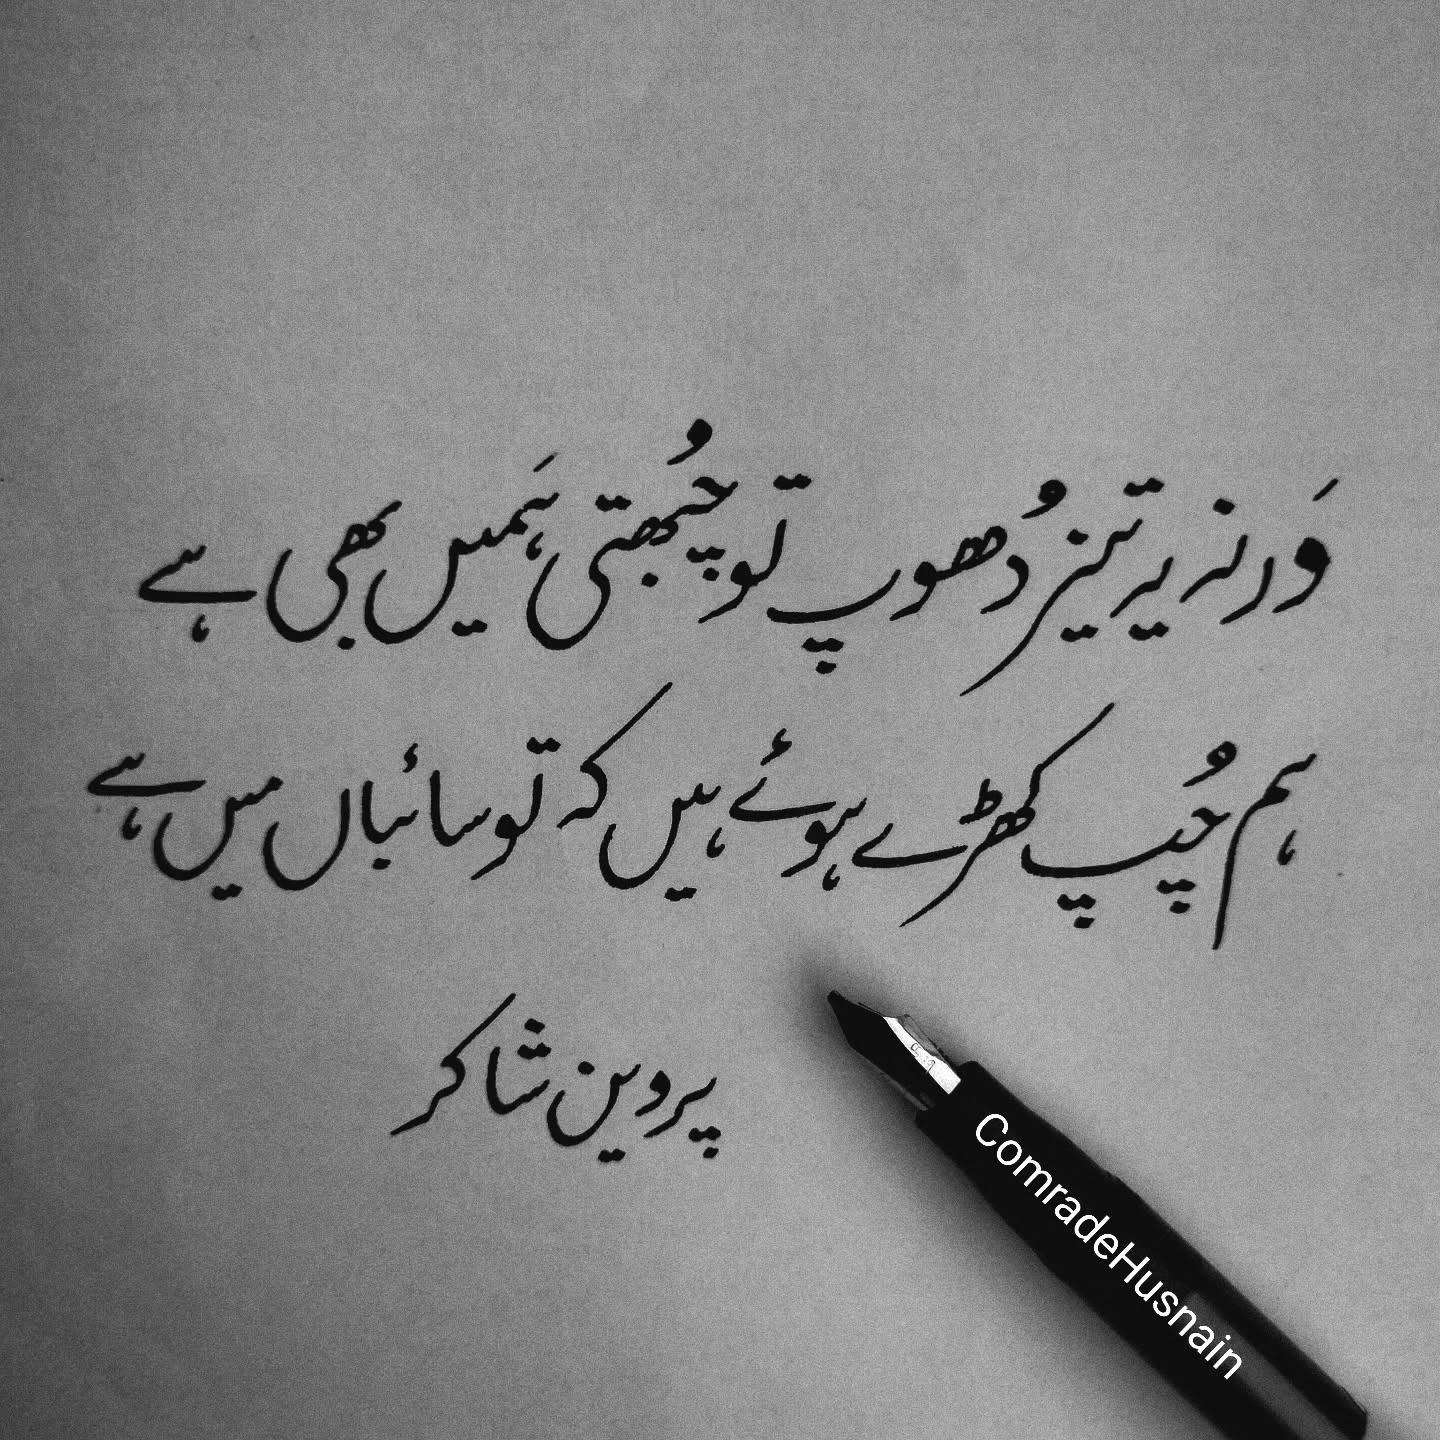 وَرنہ یہ تیز دُھوپ تو چُبھتی ہَمیں بھی ہے
ہم چُپ کھڑے ہوئے ہیں کہ تو سائباں میں ہے
پروین شاکر
ComradeHusnain